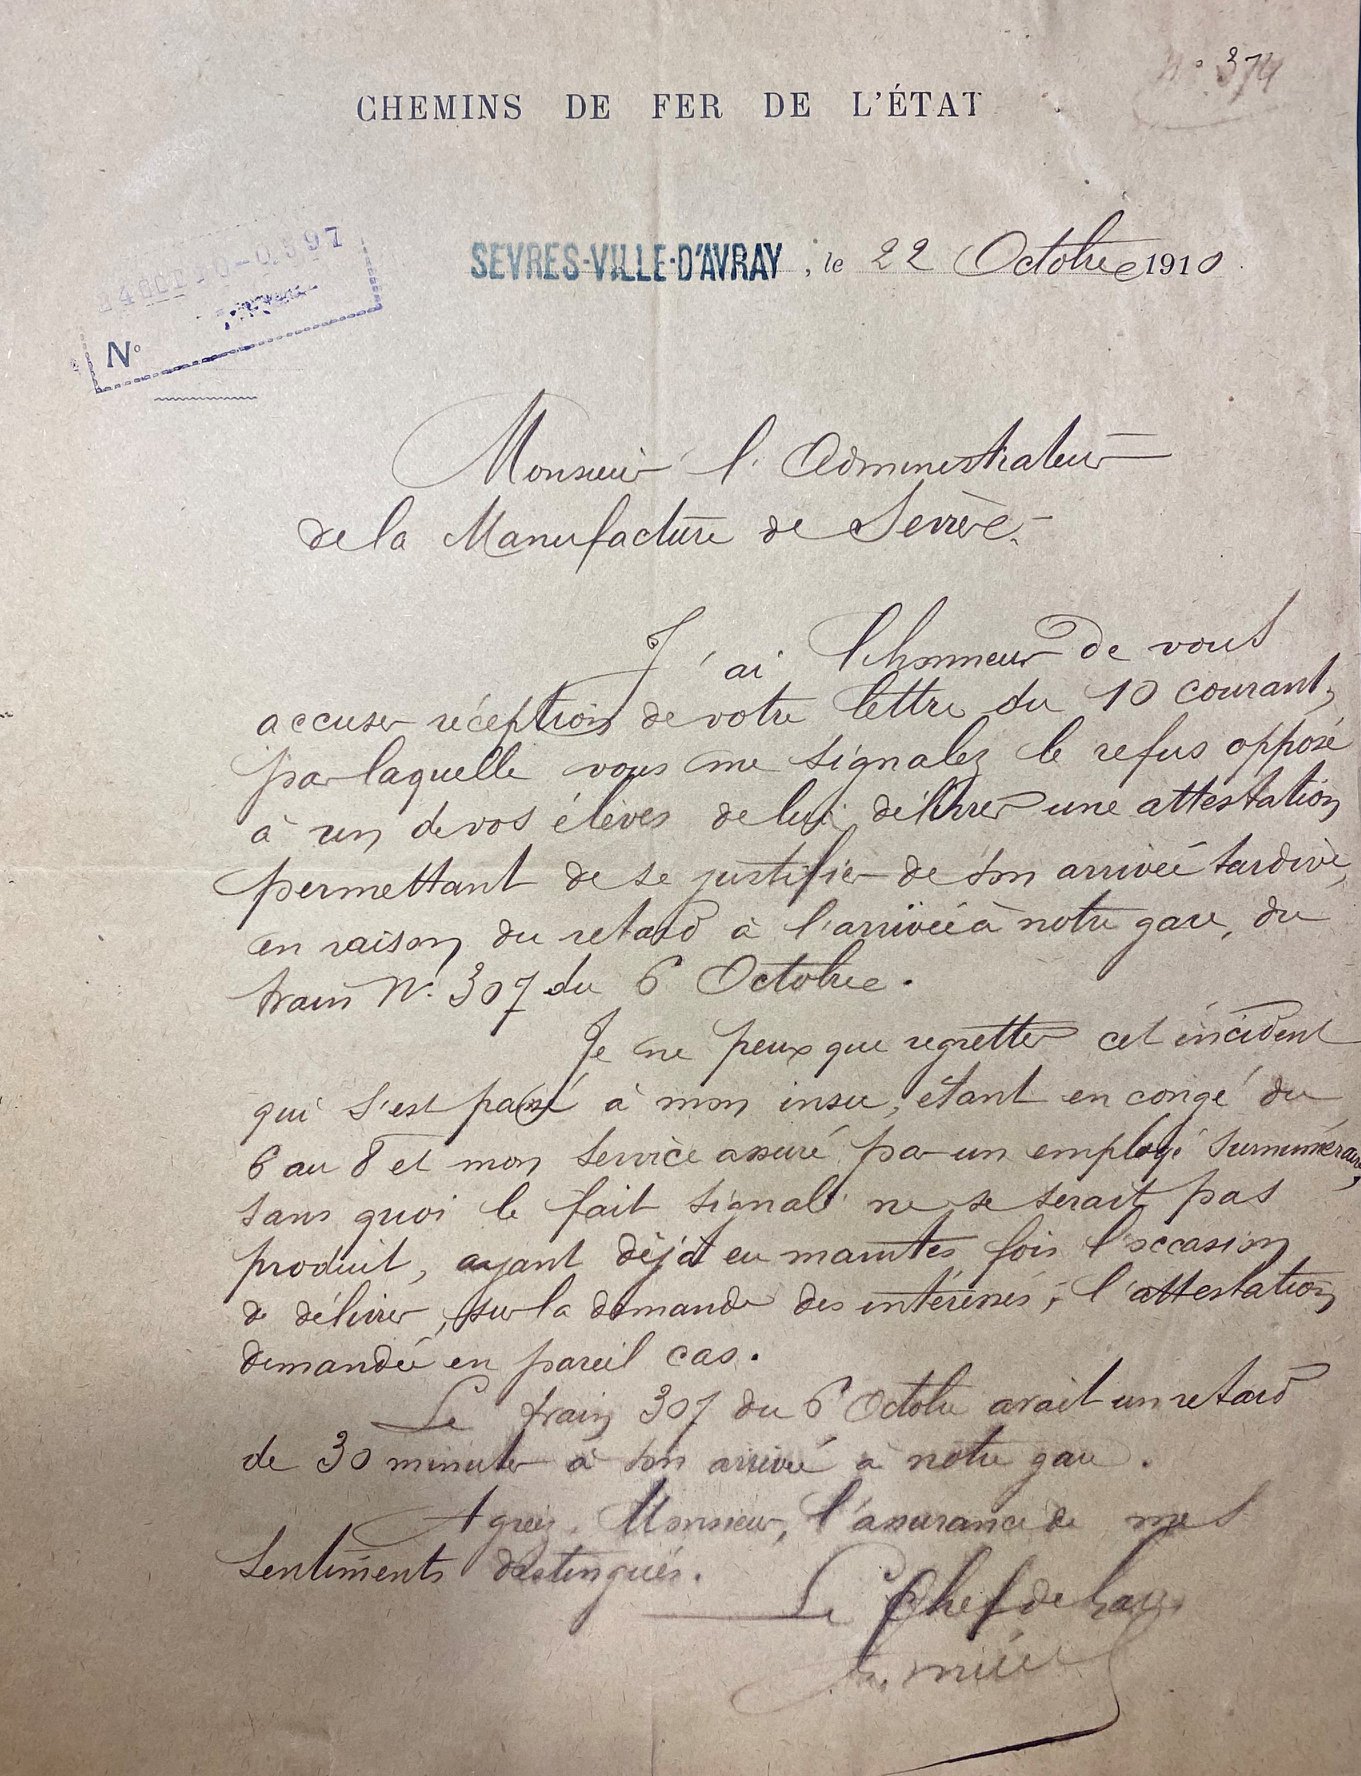 N° 374
CHEMINS DE FER DE L'ÉTAT
24 OCT 10-0597
SEVRES-VILLE-D'AVRAY, le 22 Octobre 1910
N°
Monsieur l'Administrateur
de la Manufacture de Sèvres.
J'ai l'honneur de vous
accuser réception de votre lettre du 10 courant,
par laquelle vous me signalez le refus opposé
à un de vos élèves de lui délivrer une attestation
permettant de se justifier de son arrivée tardive,
en raison du retard à l'arrivée à notre gare, du
train N° 307 du 6 Octobre.
Je ne peux que regretter cet incident
qui s'est passé à mon insu, étant en congé du
6 au 8 et mon service assuré par un employé surnuméraire,
sans quoi le fait signalé ne se serait pas
produit, ayant déjà eu maintes fois l'occasion
de délivrer, sur la demande des intéressés, l'attestation
demandée en pareil cas.
Le train 307 du 6 Octobre avait un retard
de 30 minutes à son arrivée à notre gare.
Agréez, Monsieur, l'assurance de mes
sentiments distingués.
Le Chef de Gare